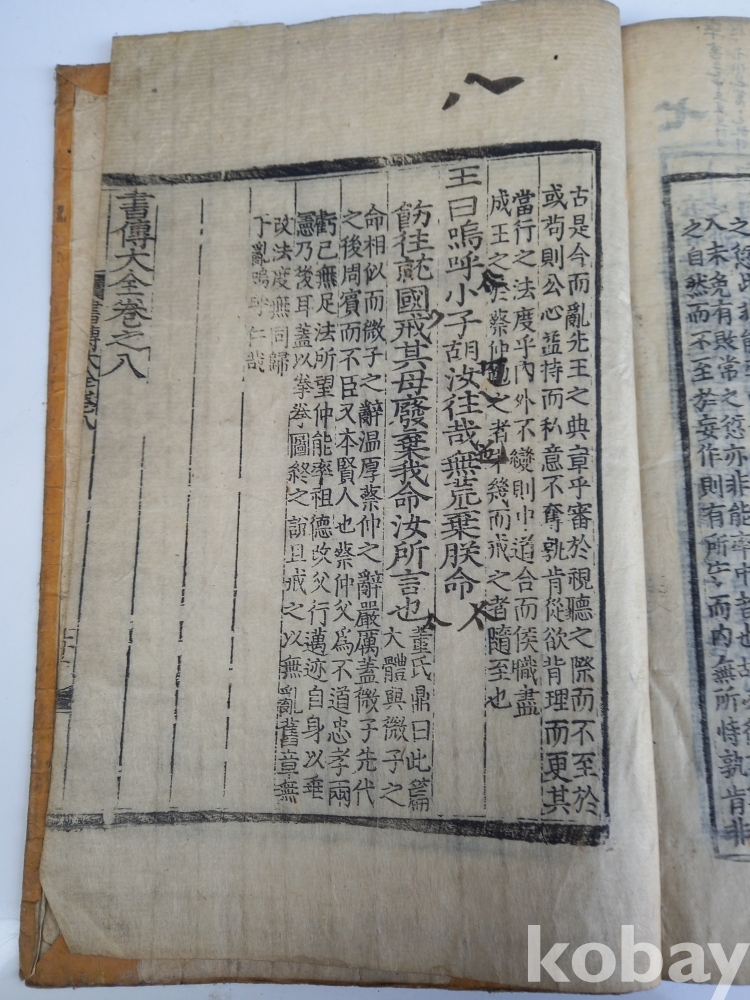 八
古是今而亂先王之典章乎審於視聽之際而不至於
或茍則公心益持而私意不奪孰肯從欲肯理而更其
當行之法度乎內外不變則中道合而侯職盡
成王之於蔡仲勉之者非幾而戒之者隨至也
王曰嗚呼小子胡汝往哉無荒棄朕命
飭往就國戒其毋廢棄我命汝所言也
董氏鼎曰此篇
大體與微子之
命相似而微子之辭溫厚蔡仲之辭嚴厲蓋微子先代
之後周賓而不臣又本賢人也蔡仲父為不道忠孝兩
虧已無足法所望仲能率祖德改父行邁迹自身以垂
憲乃後耳蓋以拳拳圖終之詔且戒之以無亂舊章無
改法度無同歸
于亂嗚呼仁哉
書傳大全卷之八
書傳大全卷八
七
之愆此
入未免有敗常之愆亦非能率中者也
之自然而不至於妄作則有所守而內無所恃孰肯非
kobay